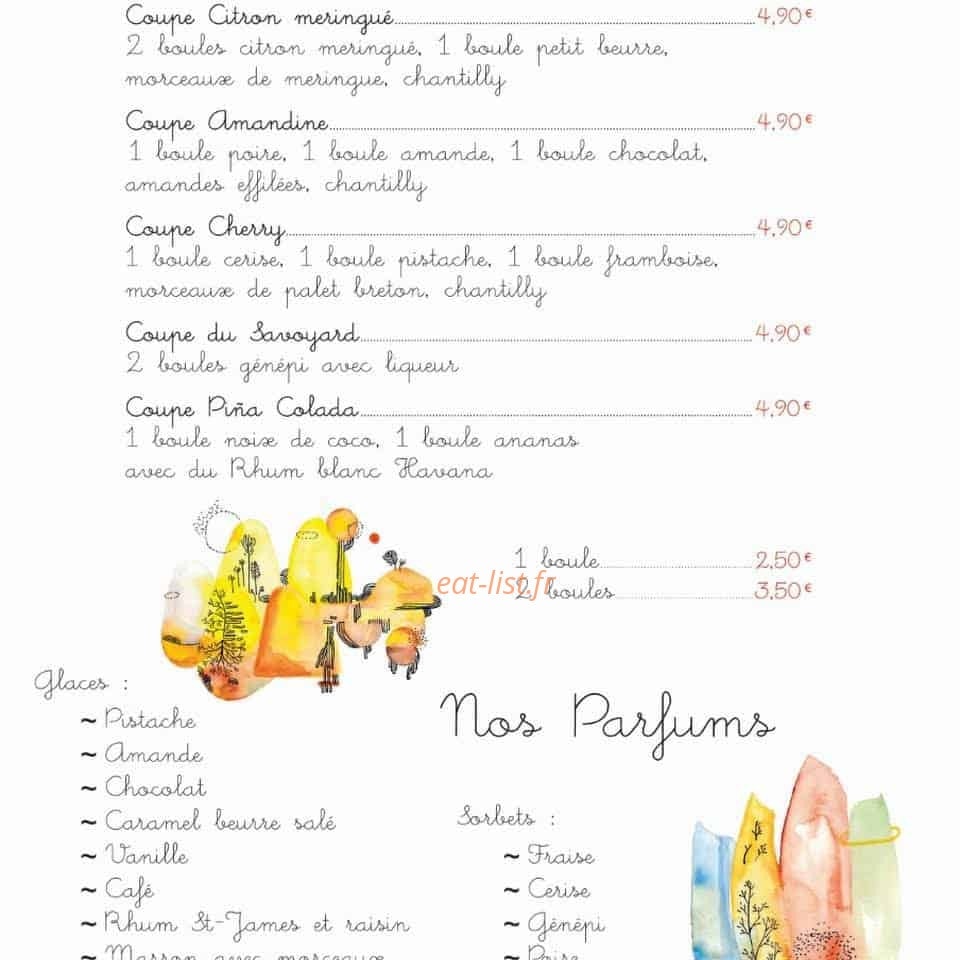 Coupe Citron meringué 4,90 €
2 boules citron meringué, 1 boule petit beurre,
morceaux de meringue, chantilly
Coupe Amandine 4,90 €
1 boule poire, 1 boule amande, 1 boule chocolat,
amandes effilées, chantilly
Coupe Cherry 4,90 €
1 boule cerise, 1 boule pistache, 1 boule framboise,
morceaux de palet breton, chantilly
Coupe du Savoyard 4,90 €
2 boules génépi avec liqueur
Coupe Piña Colada 4,90 €
1 boule noix de coco, 1 boule ananas
avec du Rhum blanc Havana
1 boule 2,50 €
eat-list.fr
2 boules 3,50 €
Nos Parfums
Glaces :
~ Pistache
~ Amande
~ Chocolat
~ Caramel beurre salé
~ Vanille
~ Café
~ Rhum St-James et raisin
~ Marron avec morceaux
Sorbets :
~ Fraise
~ Cerise
~ Génépi
~ Poire